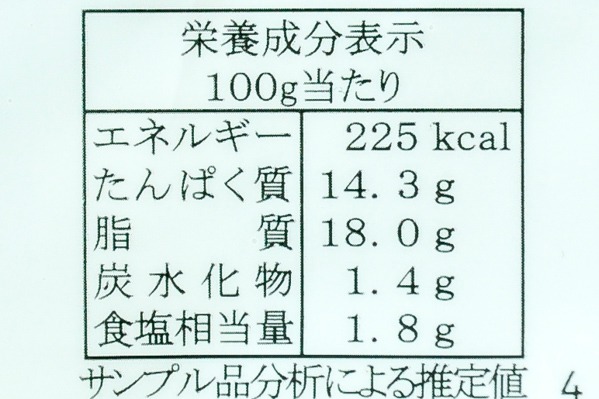 栄養成分表示
100g当たり
エネルギー 225 kcal
たんぱく質 14.3 g
脂質 18.0 g
炭水化物 1.4 g
食塩相当量 1.8 g
サンプル品分析による推定値 4